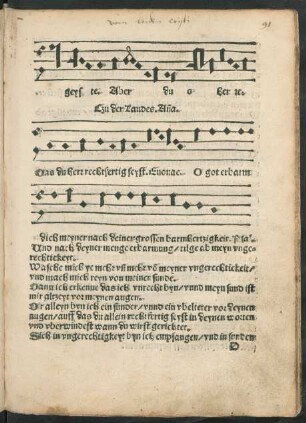 91
geys te. Aber du o her re.
Czu der Laudes. Aña.
Das du herr rechtfertig seyst. Euouae. O got erbarm
dich meyner nach deiner grossen barmhertzigkeit.
Und nach deyner menge erbarmung / tilge ab meyn vngerechtickeyt.
Wasche mich ye mehr vñ mehr võ meyner vngerechtickeit /
vnd mach mich reyn von meiner sunde.
Dann ich erkenne das ich vnrecht byn / vnnd meyn sund ist
mir alzeyt vor meynen augen.
Dir alleyn byn ich ein sunder / vnnd ein vbelteter vor deynen
augen / auff das du allein rechtfertig seyst in deynen worten
vnd vberwindest wann du wirst gerichtet.
Sich in vngerechtigkeyt byn ich empfangen / vnd in sunden
D